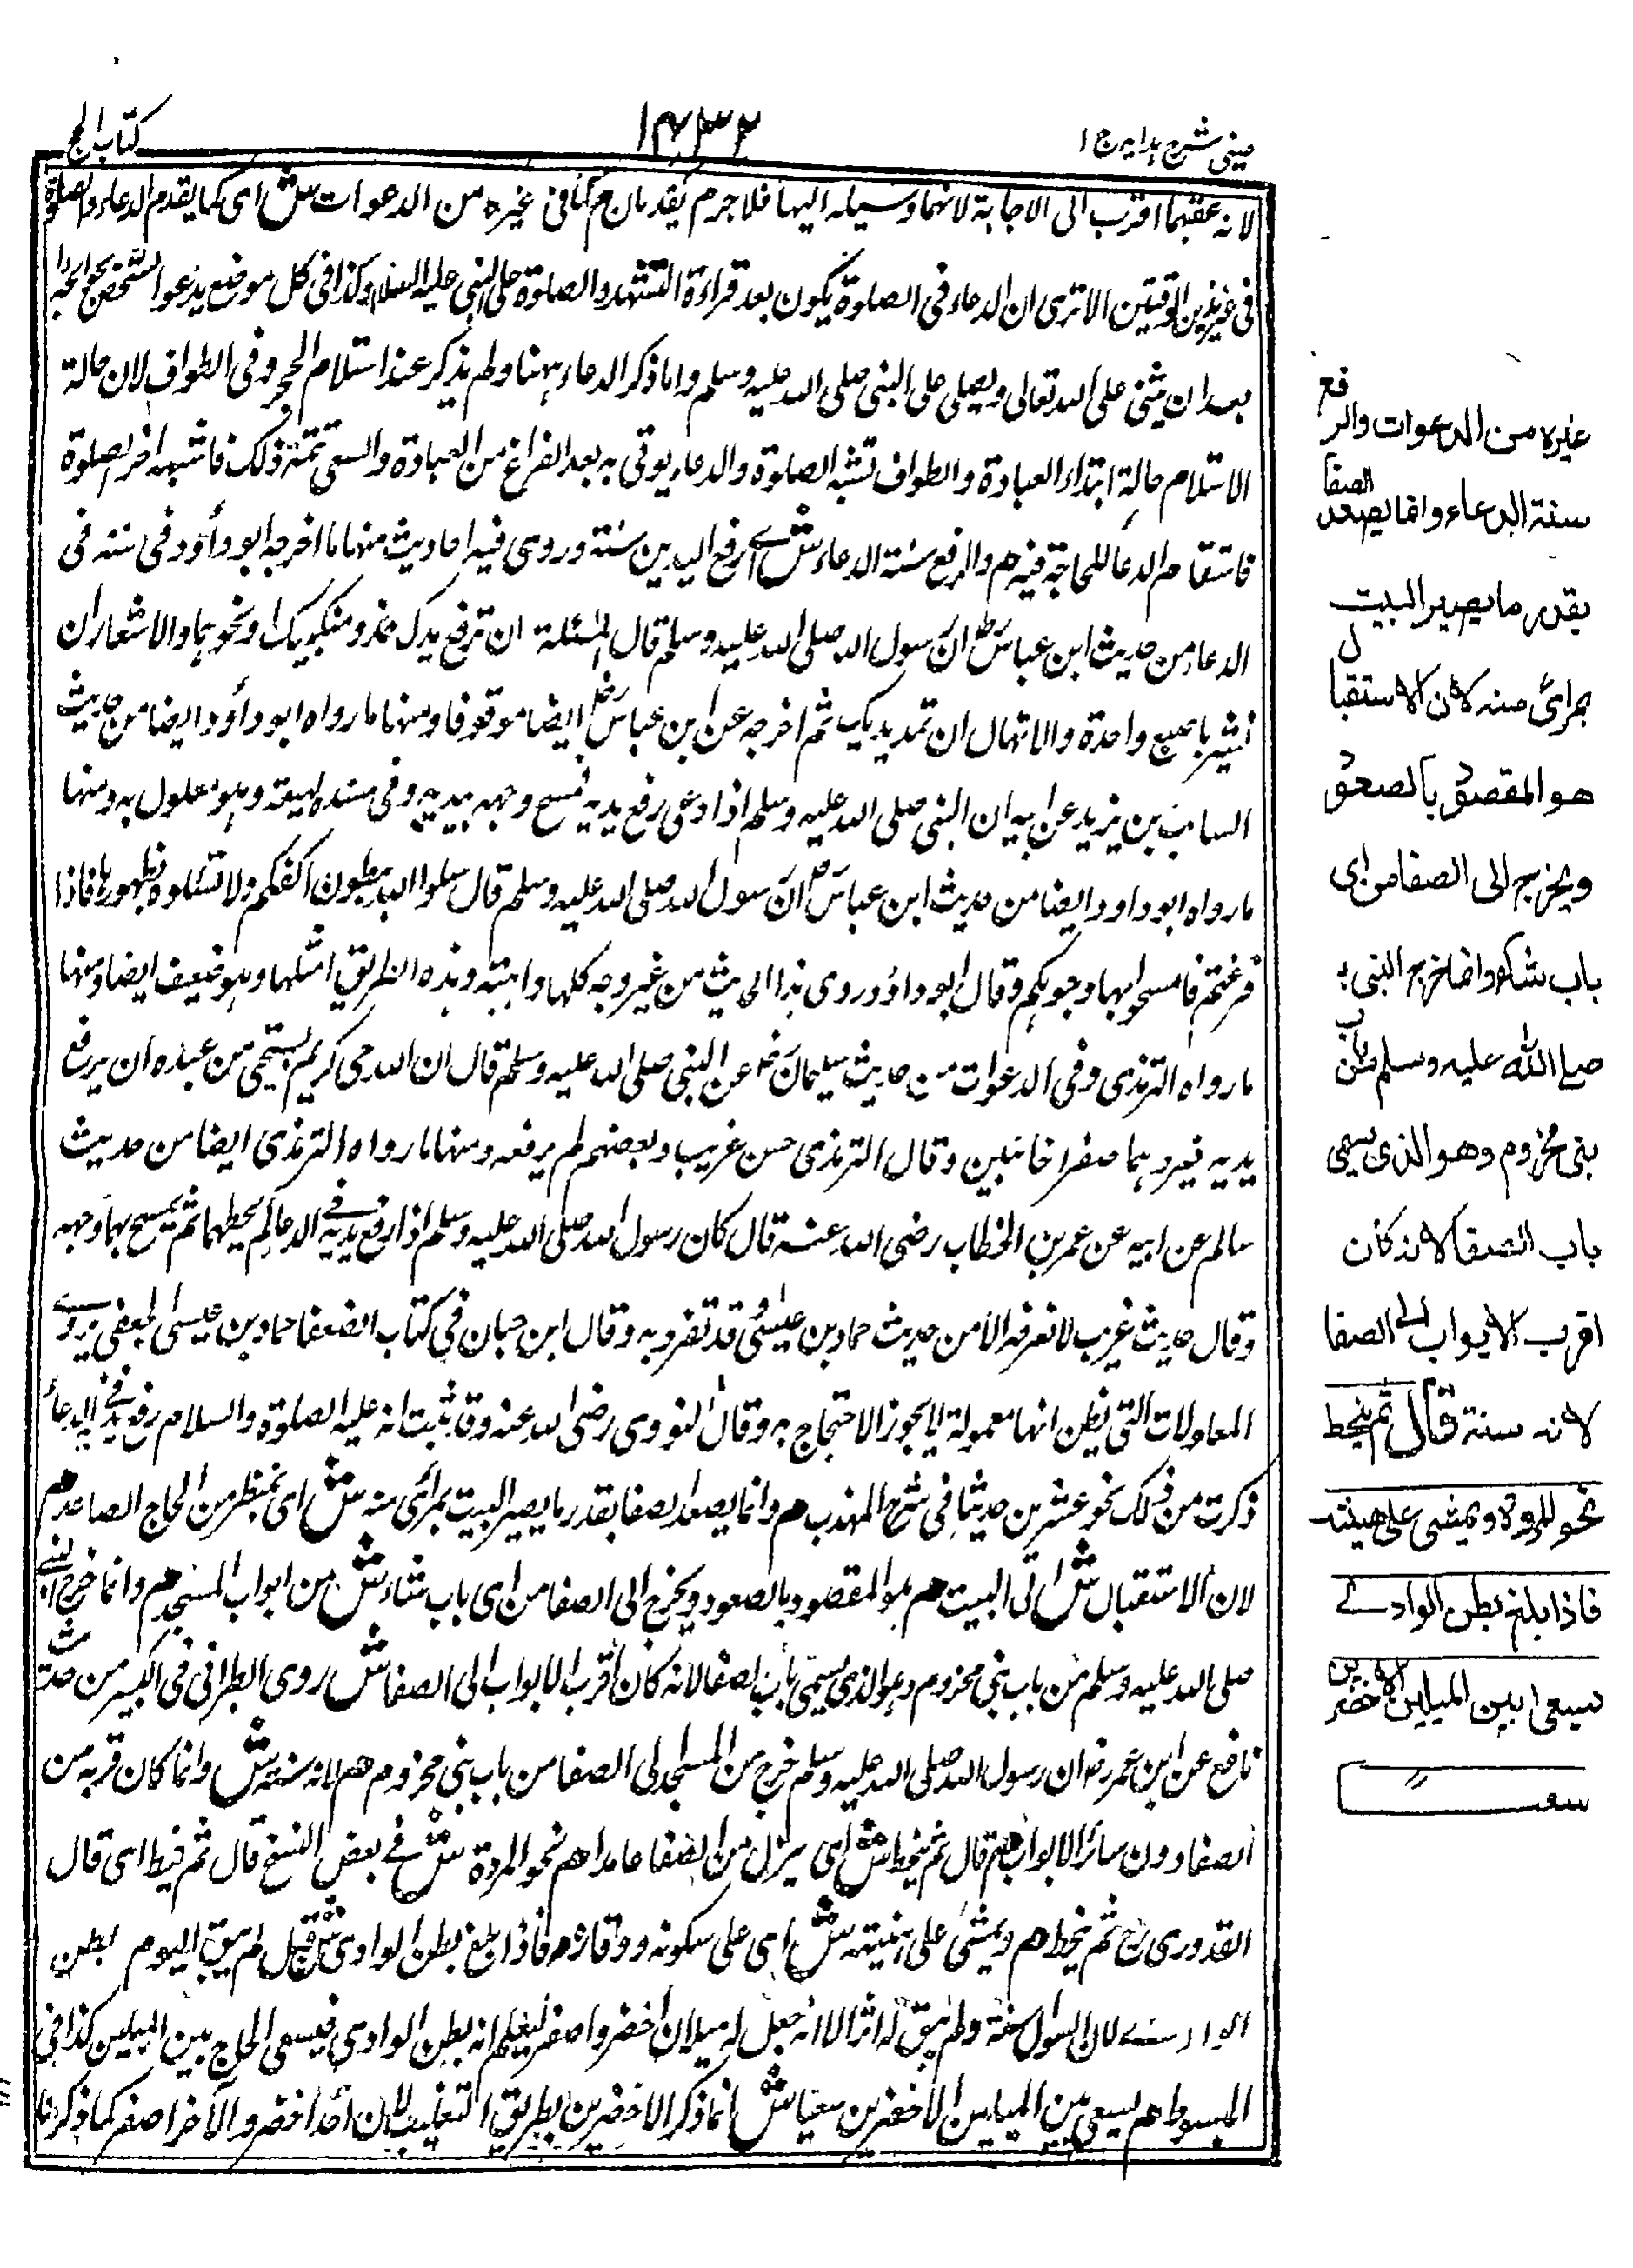 عینی شرح ہدایہ ج ١
١٤٣٢
كتاب الحج
لانه عقبهما اقرب الى الاجابة لانهما وسيلة اليها فلا جرم يقدمان م كما فى غيره من الدعوات ش اى كما يقدم الدعاء والصلوة
فى غير هذين الوقتين الا ترى ان الدعاء فى الصلوة يكون بعد قراءة التشهد والصلوة على النبى عليه السلام وكذا فى كل موضع يدعو الشخص
بعد ان يثنى على الله تعالى ويصلى على النبى صلى الله عليه وسلم وانما ذكر الدعاء ههنا ولم يذكر عند استلام الحجر وفى الطواف لان حالة
الاستلام حالة ابتداء العبادة والطواف تشبه الصلوة والدعاء يوتى به بعد الفراغ من العبادة والسعى تتمة ذلك فاشبه اخر الصلوة
فاستقام الدعا للحاجة فيه م والرفع سنة الدعاء ش اى رفع اليدين سنة وروى فيه احاديث منها ما اخرجه ابو داؤد فى سننه فى
الدعاء من حديث ابن عباس رض ان رسول الله صلى الله عليه وسلم قال المسئلة ان ترفع يديك حذو منكبيك او نحوهما والاشعار ان
تشير باصبع واحدة والابتهال ان تمد يديك ثم اخرجه عن ابن عباس رض ايضا موقوفا ومنها ما رواه ابو داؤد ايضا من حديث
السائب بن يزيد عن ابيه ان النبى صلى الله عليه وسلم اذا دعى رفع يديه فمسح وجهه بيديه وفى سنده لهيعة وهو معلول به ومنها
ما رواه ابو داود ايضا من حديث ابن عباس رض ان رسول الله صلى الله عليه وسلم قال سلوا الله ببطون اكفكم ولا تسئلوه بظهورها فاذا
فرغتم فامسحوا بها وجوهكم وقال ابو داؤد روى هذا الحديث من غير وجه كلها واهية وهذه الطريق امثلها وهو ضعيف ايضا ومنها
ما رواه الترمذى وفى الدعوات من حديث سليمان رض عن النبى صلى الله عليه وسلم قال ان الله حى كريم يستحيى من عبده ان يرفع
يديه فيردهما صفرا خائبين وقال الترمذى حسن غريب وبعضهم لم يرفعه ومنها ما رواه الترمذى ايضا من حديث
سالم عن ابيه عن عمر بن الخطاب رضى الله عنه قال كان رسول الله صلى الله عليه وسلم اذا رفع يديه فى الدعا لم يحطهما ثم يمسح بهما وجهه
وقال حديث غريب لا نعرفه الا من حديث حماد بن عيسى وقد تفرد به وقال ابن حبان فى كتاب الضعفا حماد بن عيسى الجعفى يروى
المعلولات التى يظن انها معمولة لا يجوز الاحتجاج به وقال النووى رضى الله عنه وقد ثبت انه عليه الصلوة والسلام رفع يديه فى الدعاء
ذكرت من ذلك نحو عشرين حديثا فى شرح المهذب م وانما يصعد الصفا بقدر ما يصير البيت بمرأى منه ش اى بمنظر من الحاج الصاعد م
لان الاستقبال ش اى الى البيت م هو المقصود بالصعود ويخرج الى الصفا من اى باب شاء ش من ابواب المسجد م وانما خرج النبى
صلى الله عليه وسلم من باب بنى مخزوم وهو الذى يسمى باب الصفا لانه كان اقرب الابواب الى الصفا ش روى الطبرانى فى الكبير من حديث
نافع عن ابن عمر رض ان رسول الله صلى الله عليه وسلم خرج من المسجد الى الصفا من باب بنى مخزوم م لا انه سنة ش وانما كان قربه من
الصفا دون سائر الابواب م قال ثم ينحط ش اى ينزل من الصفا عامدا م نحو المروة ش فى بعض النسخ قال ثم ينحط اى قال
القدورى رح ثم ينحط م ويمشى على هينته ش اى على سكونه ووقاره م فاذا بلغ بطن الوادى ش قيل لم يبق اليوم بطن
الوادى لان السيول سفته ولم يبق له اثر الا انه جعل له ميلان اخضر واصفر ليعلم انه بطن الوادى فيسعى الحاج بين الميلين كذا فى
المبسوط م يسعى بين الميلين الاخضرين سعيا ش انما ذكر الاخضرين بطريق التغليب لان احدا اخضر والآخر اصفر كما ذكرنا
غيره من الدعوات والرفع
سنة الدعاء وانما يصعد الصفا
بقدر ما يصير البيت
بمرائ منه لان الاستقبال
هو المقصود بالصعود
ويخرج الى الصفا من اى
باب شاء وانما خرج النبى
صلى الله عليه وسلم من باب
بنى مخزوم وهو الذى يسمى
باب الصفا لانه كان
اقرب الابواب الى الصفا
لا انه سنة قال ثم ينحط
نحو المروة ويمشى على هينته
فاذا بلغ بطن الوادى
يسعى بين الميلين الاخضرين
سعيا